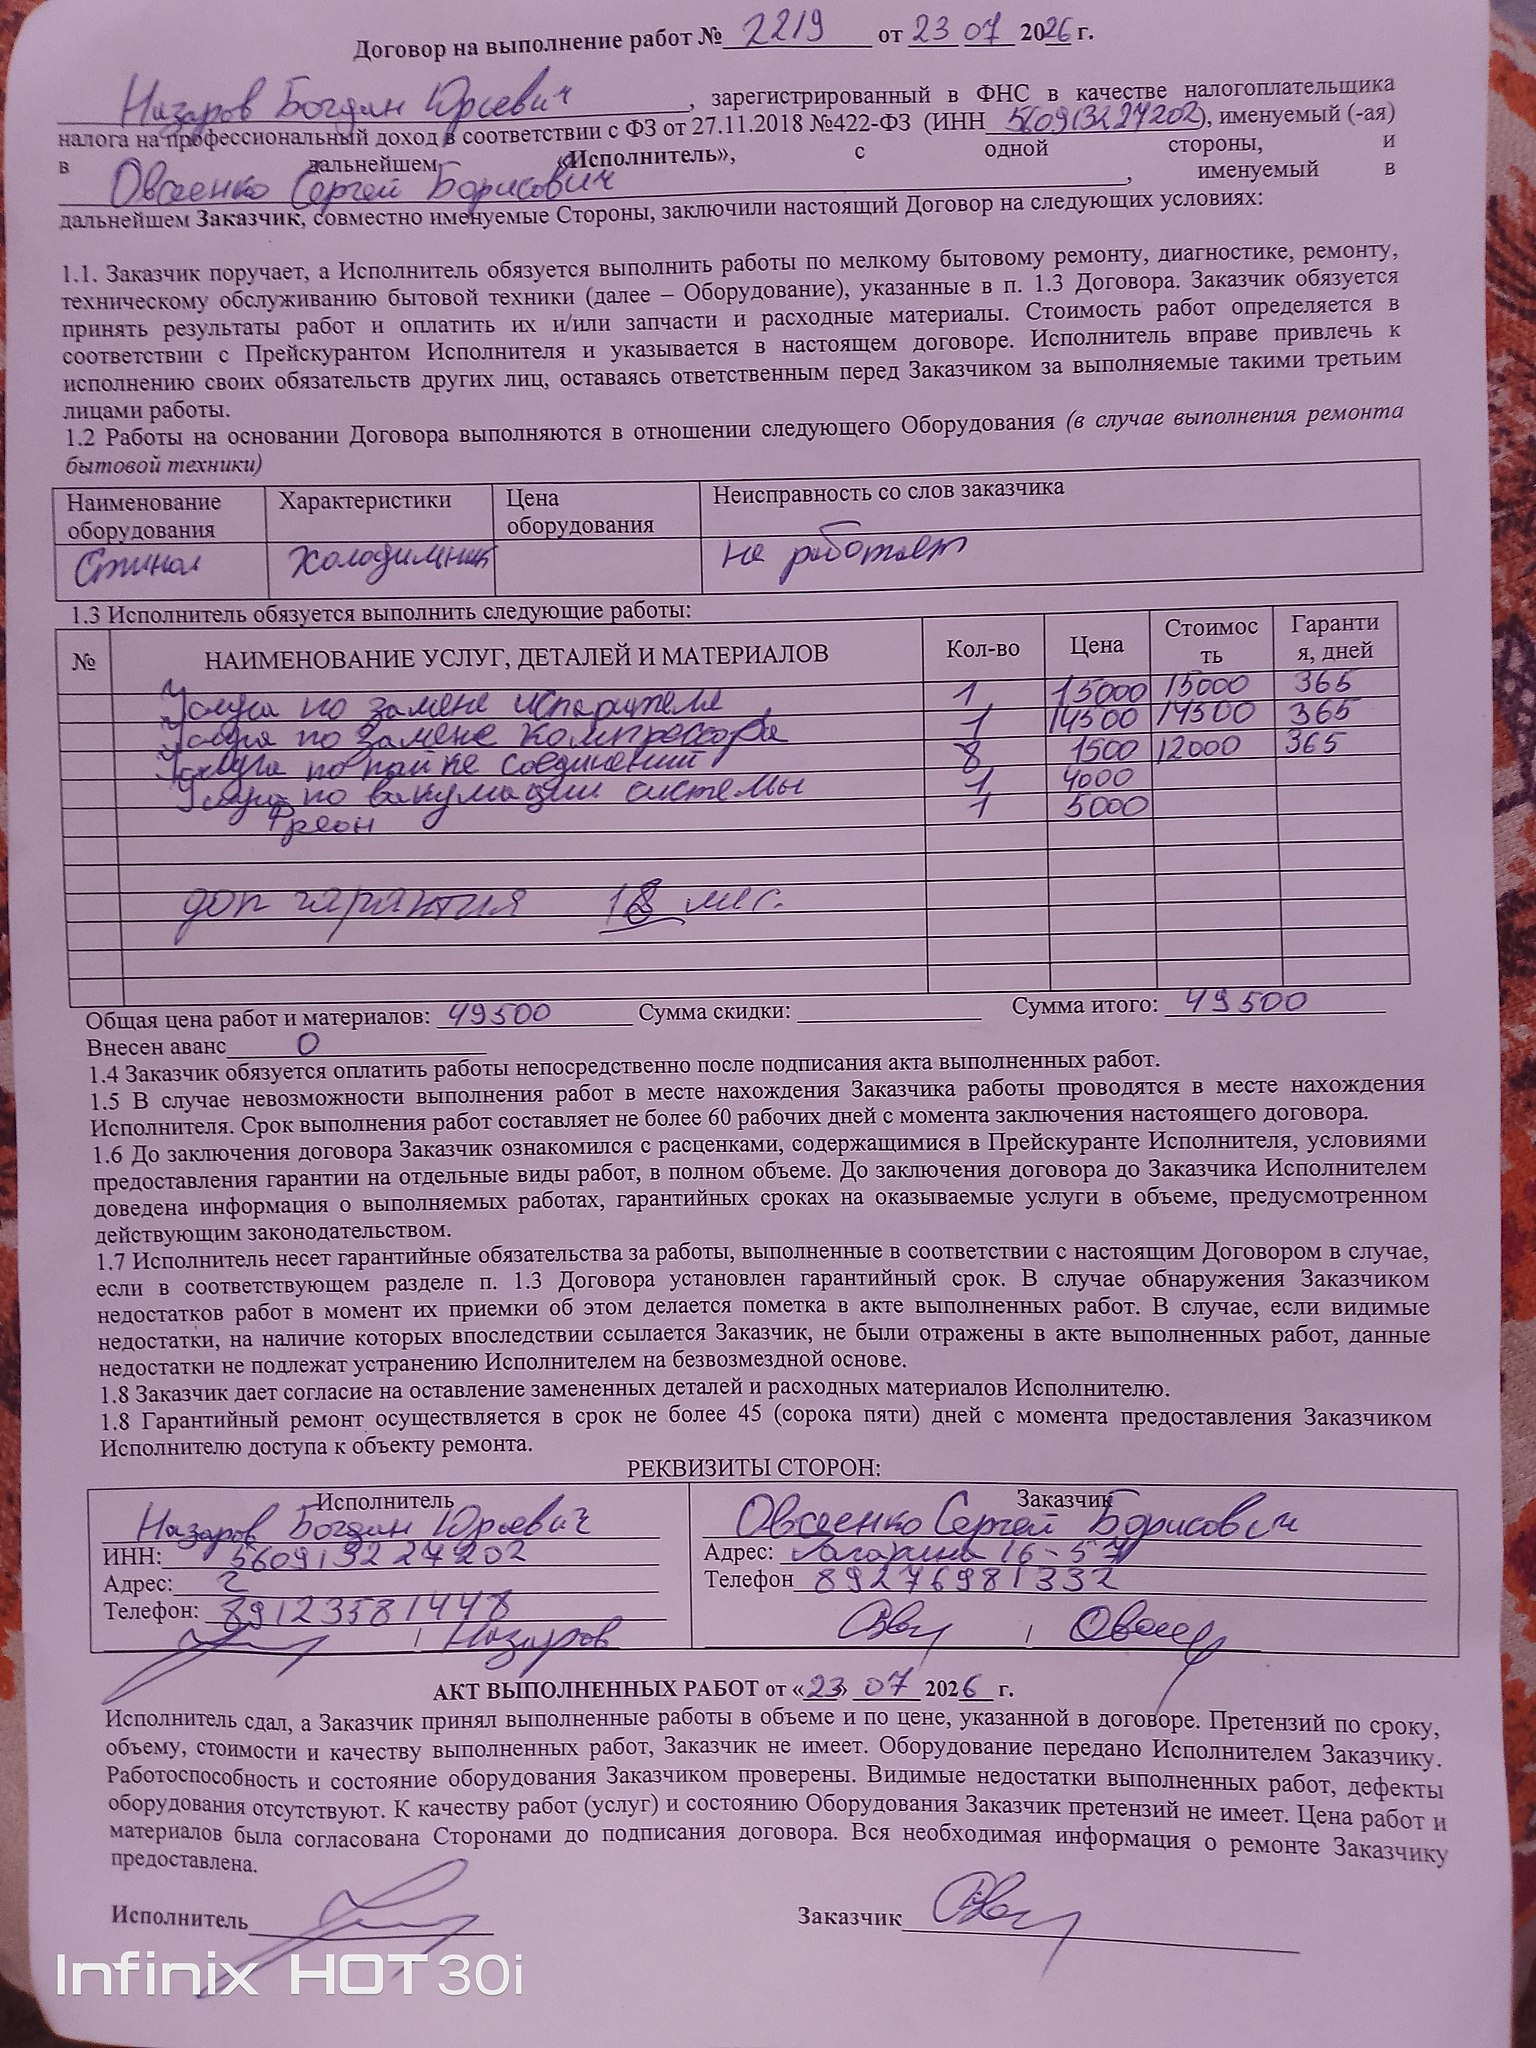 Договор на выполнение работ № 2219 от 23 07 2026 г.
Назаров Богдан Юрьевич, зарегистрированный в ФНС в качестве налогоплательщика
налога на профессиональный доход в соответствии с ФЗ от 27.11.2018 №422-ФЗ (ИНН 560913227202), именуемый (-ая)
в дальнейшем «Исполнитель», с одной стороны, и
Овсеенко Сергей Борисович, именуемый в
дальнейшем Заказчик, совместно именуемые Стороны, заключили настоящий Договор на следующих условиях:
1.1. Заказчик поручает, а Исполнитель обязуется выполнить работы по мелкому бытовому ремонту, диагностике, ремонту,
техническому обслуживанию бытовой техники (далее – Оборудование), указанные в п. 1.3 Договора. Заказчик обязуется
принять результаты работ и оплатить их и/или запчасти и расходные материалы. Стоимость работ определяется в
соответствии с Прейскурантом Исполнителя и указывается в настоящем договоре. Исполнитель вправе привлечь к
исполнению своих обязательств других лиц, оставаясь ответственным перед Заказчиком за выполняемые такими третьим
лицами работы.
1.2 Работы на основании Договора выполняются в отношении следующего Оборудования (в случае выполнения ремонта
бытовой техники)
Наименование оборудования Характеристики Цена оборудования Неисправность со слов заказчика
Стинол Холодильник не работает
1.3 Исполнитель обязуется выполнить следующие работы:
№ НАИМЕНОВАНИЕ УСЛУГ, ДЕТАЛЕЙ И МАТЕРИАЛОВ Кол-во Цена Стоимость Гарантия, дней
Услуга по замене испарителя 1 15000 15000 365
Услуга по замене компрессора 1 14500 14500 365
Услуга по пайке соединений 8 1500 12000 365
Услуга по вакумации системы 1 4000
Фреон 1 5000
доп гарантия 18 мес.
Общая цена работ и материалов: 49500 Сумма скидки: Сумма итого: 49500
Внесен аванс 0
1.4 Заказчик обязуется оплатить работы непосредственно после подписания акта выполненных работ.
1.5 В случае невозможности выполнения работ в месте нахождения Заказчика работы проводятся в месте нахождения
Исполнителя. Срок выполнения работ составляет не более 60 рабочих дней с момента заключения настоящего договора.
1.6 До заключения договора Заказчик ознакомился с расценками, содержащимися в Прейскуранте Исполнителя, условиями
предоставления гарантии на отдельные виды работ, в полном объеме. До заключения договора до Заказчика Исполнителем
доведена информация о выполняемых работах, гарантийных сроках на оказываемые услуги в объеме, предусмотренном
действующим законодательством.
1.7 Исполнитель несет гарантийные обязательства за работы, выполненные в соответствии с настоящим Договором в случае,
если в соответствующем разделе п. 1.3 Договора установлен гарантийный срок. В случае обнаружения Заказчиком
недостатков работ в момент их приемки об этом делается пометка в акте выполненных работ. В случае, если видимые
недостатки, на наличие которых впоследствии ссылается Заказчик, не были отражены в акте выполненных работ, данные
недостатки не подлежат устранению Исполнителем на безвозмездной основе.
1.8 Заказчик дает согласие на оставление замененных деталей и расходных материалов Исполнителю.
1.8 Гарантийный ремонт осуществляется в срок не более 45 (сорока пяти) дней с момента предоставления Заказчиком
Исполнителю доступа к объекту ремонта.
РЕКВИЗИТЫ СТОРОН:
Исполнитель
Назаров Богдан Юрьевич
ИНН: 560913227202
Адрес:
Телефон: 89123581448
Назаров
Заказчик
Овсеенко Сергей Борисович
Адрес: Гагарина 16-57
Телефон 89276981332
АКТ ВЫПОЛНЕННЫХ РАБОТ от «23» 07 2026 г.
Исполнитель сдал, а Заказчик принял выполненные работы в объеме и по цене, указанной в договоре. Претензий по сроку,
объему, стоимости и качеству выполненных работ, Заказчик не имеет. Оборудование передано Исполнителем Заказчику.
Работоспособность и состояние оборудования Заказчиком проверены. Видимые недостатки выполненных работ, дефекты
оборудования отсутствуют. К качеству работ (услуг) и состоянию Оборудования Заказчик претензий не имеет. Цена работ и
материалов была согласована Сторонами до подписания договора. Вся необходимая информация о ремонте Заказчику
предоставлена.
Исполнитель Заказчик
Infinix HOT 30i